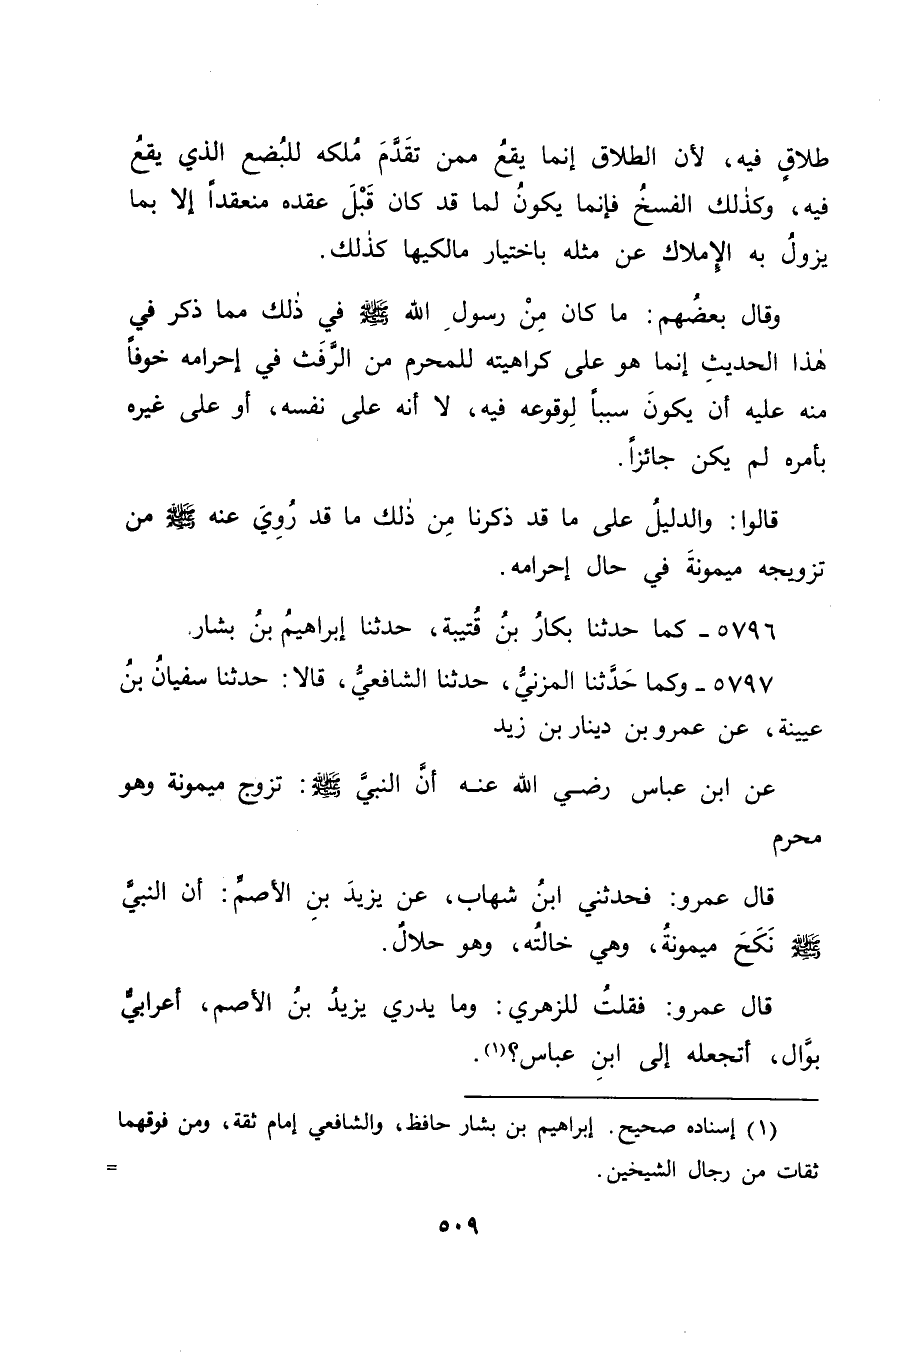 طلاقٍ فيه، لأن الطلاق إنما يقعُ ممن تقَدَّمَ مُلكه للبُضع الذي يقعُ
فيه، وكذٰلك الفسخُ فإنما يكونُ لما قد كان قَبْلَ عقده منعقداً إلا بما
يزولُ به الإِملاك عن مثله باختيار مالكيها كذٰلك.
وقال بعضُهم: ما كان مِنْ رسولِ الله ﷺ في ذٰلك مما ذكر في
هٰذا الحديثِ إنما هو على كراهيته للمحرم من الرَّفَث في إحرامه خوفاً
منه عليه أن يكونَ سبباً لِوقوعه فيه، لا أنه على نفسه، أو على غيره
بأمره لم يكن جائزاً.
قالوا: والدليلُ على ما قد ذكرنا مِن ذٰلك ما قد رُوِيَ عنه ﷺ من
تزويجه ميمونةَ في حال إحرامه.
٥٧٩٦ ـ كما حدثنا بكارُ بنُ قُتيبة، حدثنا إبراهيمُ بنُ بشار.
٥٧٩٧ ـ وكما حَدَّثنا المزنيُّ، حدثنا الشافعيُّ، قالا: حدثنا سفيانُ بنُ
عيينة، عن عمرو بن دينار بن زيد
عن ابن عباس رضي الله عنه أنَّ النبيَّ ﷺ: تزوج ميمونة وهو
محرم
قال عمرو: فحدثني ابنُ شهاب، عن يزيدَ بنِ الأصمِّ: أن النبيَّ
ﷺ نَكَحَ ميمونةُ، وهي خالتُه، وهو حلالٌ.
قال عمرو: فقلتُ للزهري: وما يدري يزيدُ بنُ الأصم، أعرابيٌّ
بوَّال، أتجعله إلى ابنِ عباس؟(١).
(١) إسناده صحيح. إبراهيم بن بشار حافظ، والشافعي إمام ثقة، ومن فوقهما
ثقات من رجال الشيخين. =
٥٠٩